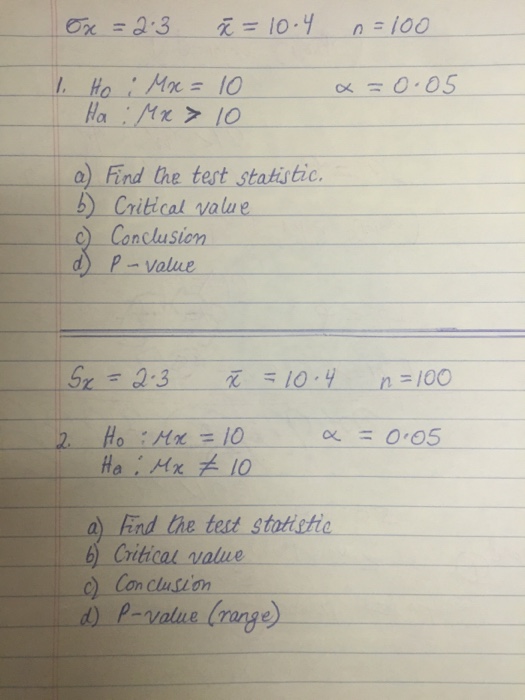 σx = 2.3 x̄ = 10.4 n = 100
1. Ho : Mx = 10 α = 0.05
Ha : Mx > 10
a) Find the test statistic.
b) Critical value
c) Conclusion
d) P-value
Sx = 2.3 x̄ = 10.4 n = 100
2. Ho : Mx = 10 α = 0.05
Ha : Mx ≠ 10
a) Find the test statistic
b) Critical value
c) Conclusion
d) P-value (range)